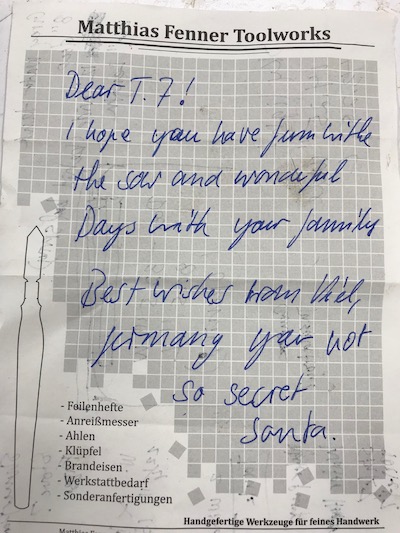 Matthias Fenner Toolworks
Dear T. 7!
I hope you have fun withe
the saw and wonderful
Days with your family
Best wishes from Kiel,
germany your not
so secret
Santa.
- Feilenhefte
- Anreißmesser
- Ahlen
- Klüpfel
- Brandeisen
- Werkstattbedarf
- Sonderanfertigungen
Handgefertige Werkzeuge für feines Handwerk